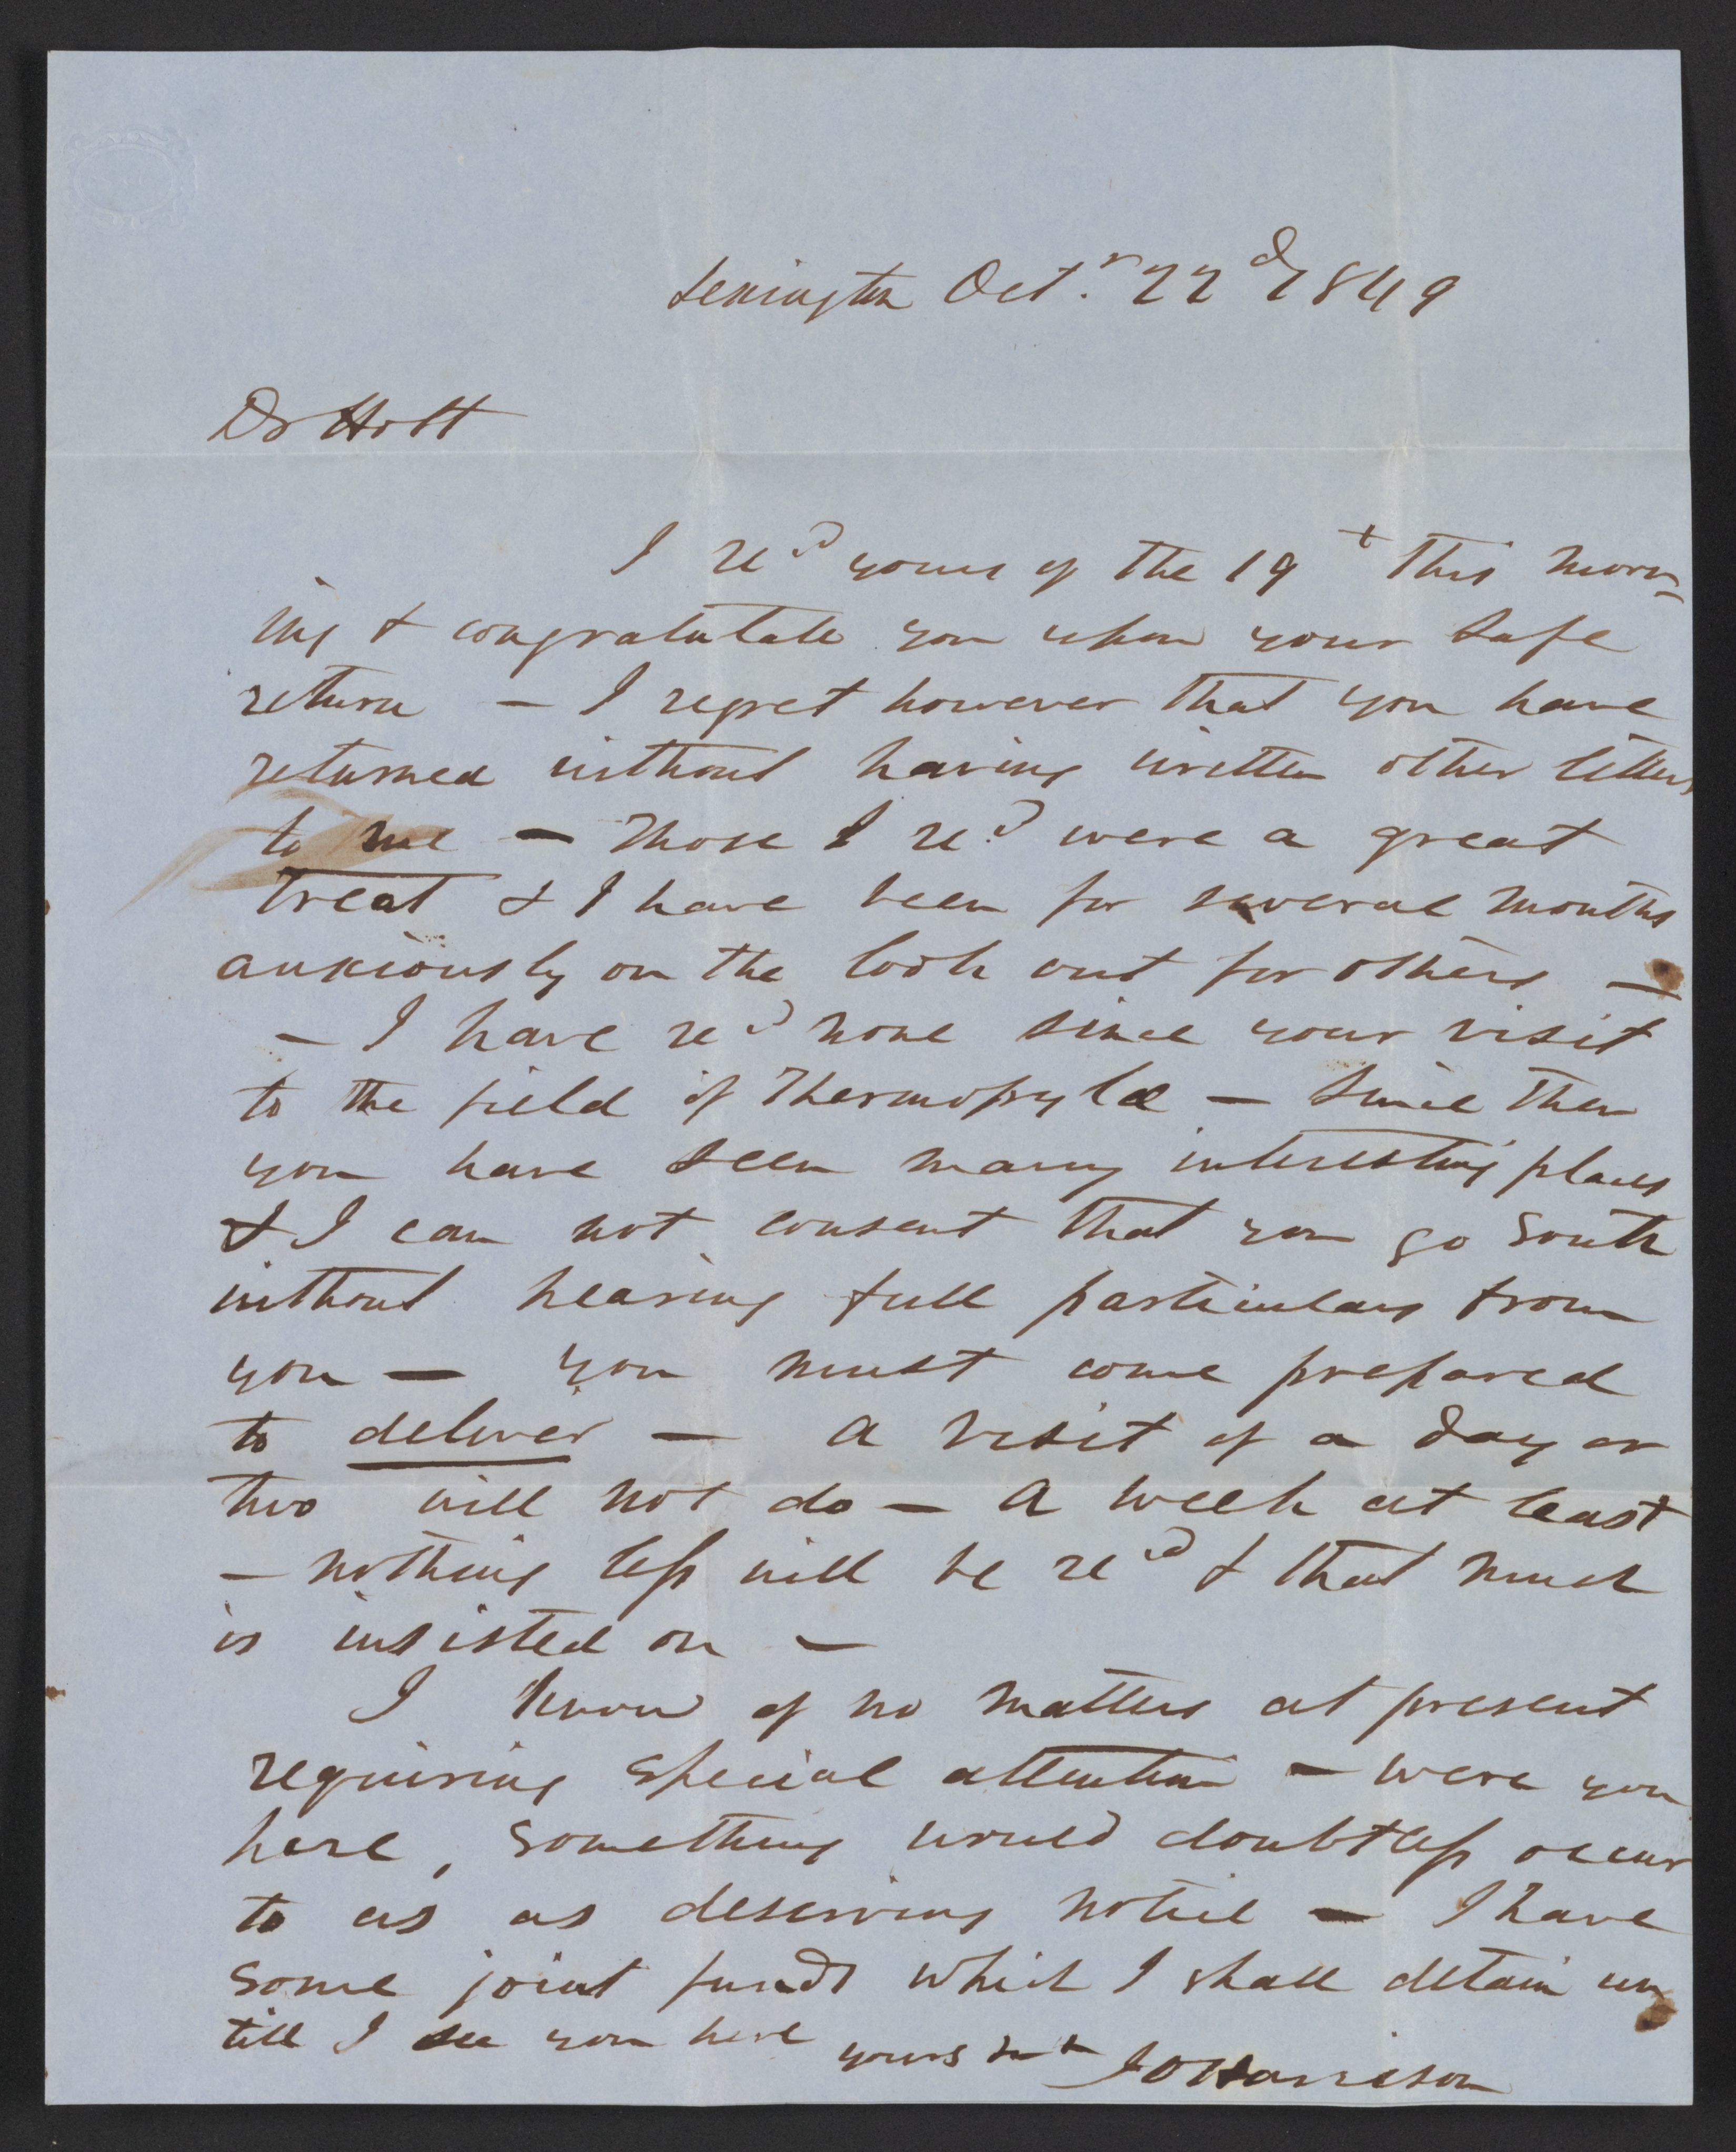 Lexington Octr. 22d 1849
Dr Holt
I recd yours of the 19t this morn=
ing & congratulate you upon your safe
return — I regret however that you have
returned without having written other letters
to me — Those I recd were a great
treat & I have been for several months
anxiously on the look out for others —
— I have recd none since your visit
to the field of Thermopylæ — Since then
you have seen many interesting places
& I can not consent that you go South
without hearing full particulars from
you — You must come prepared
to deliver — A visit of a day or
two will not do — A week at least
— nothing less will be recd & that much
is insisted on —
I know of no matters at present
requiring special attention — were you
here, something would doubtless occur
to us as deserving notice — I have
some joint funds which I shall detain un
till I see you here
yours J O Harrison